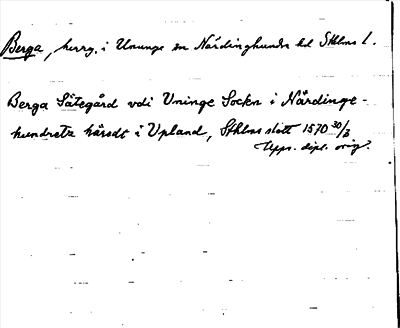 Berga, herrg. i Ununge sn Närdinghundra hd Sthlms l.
Berga Sätegård vdi Vninge Sockn i Nårdinge-
hundretz häredt i Upland, Sthlms slott 1570 30/3
Upps. dipl. orig.